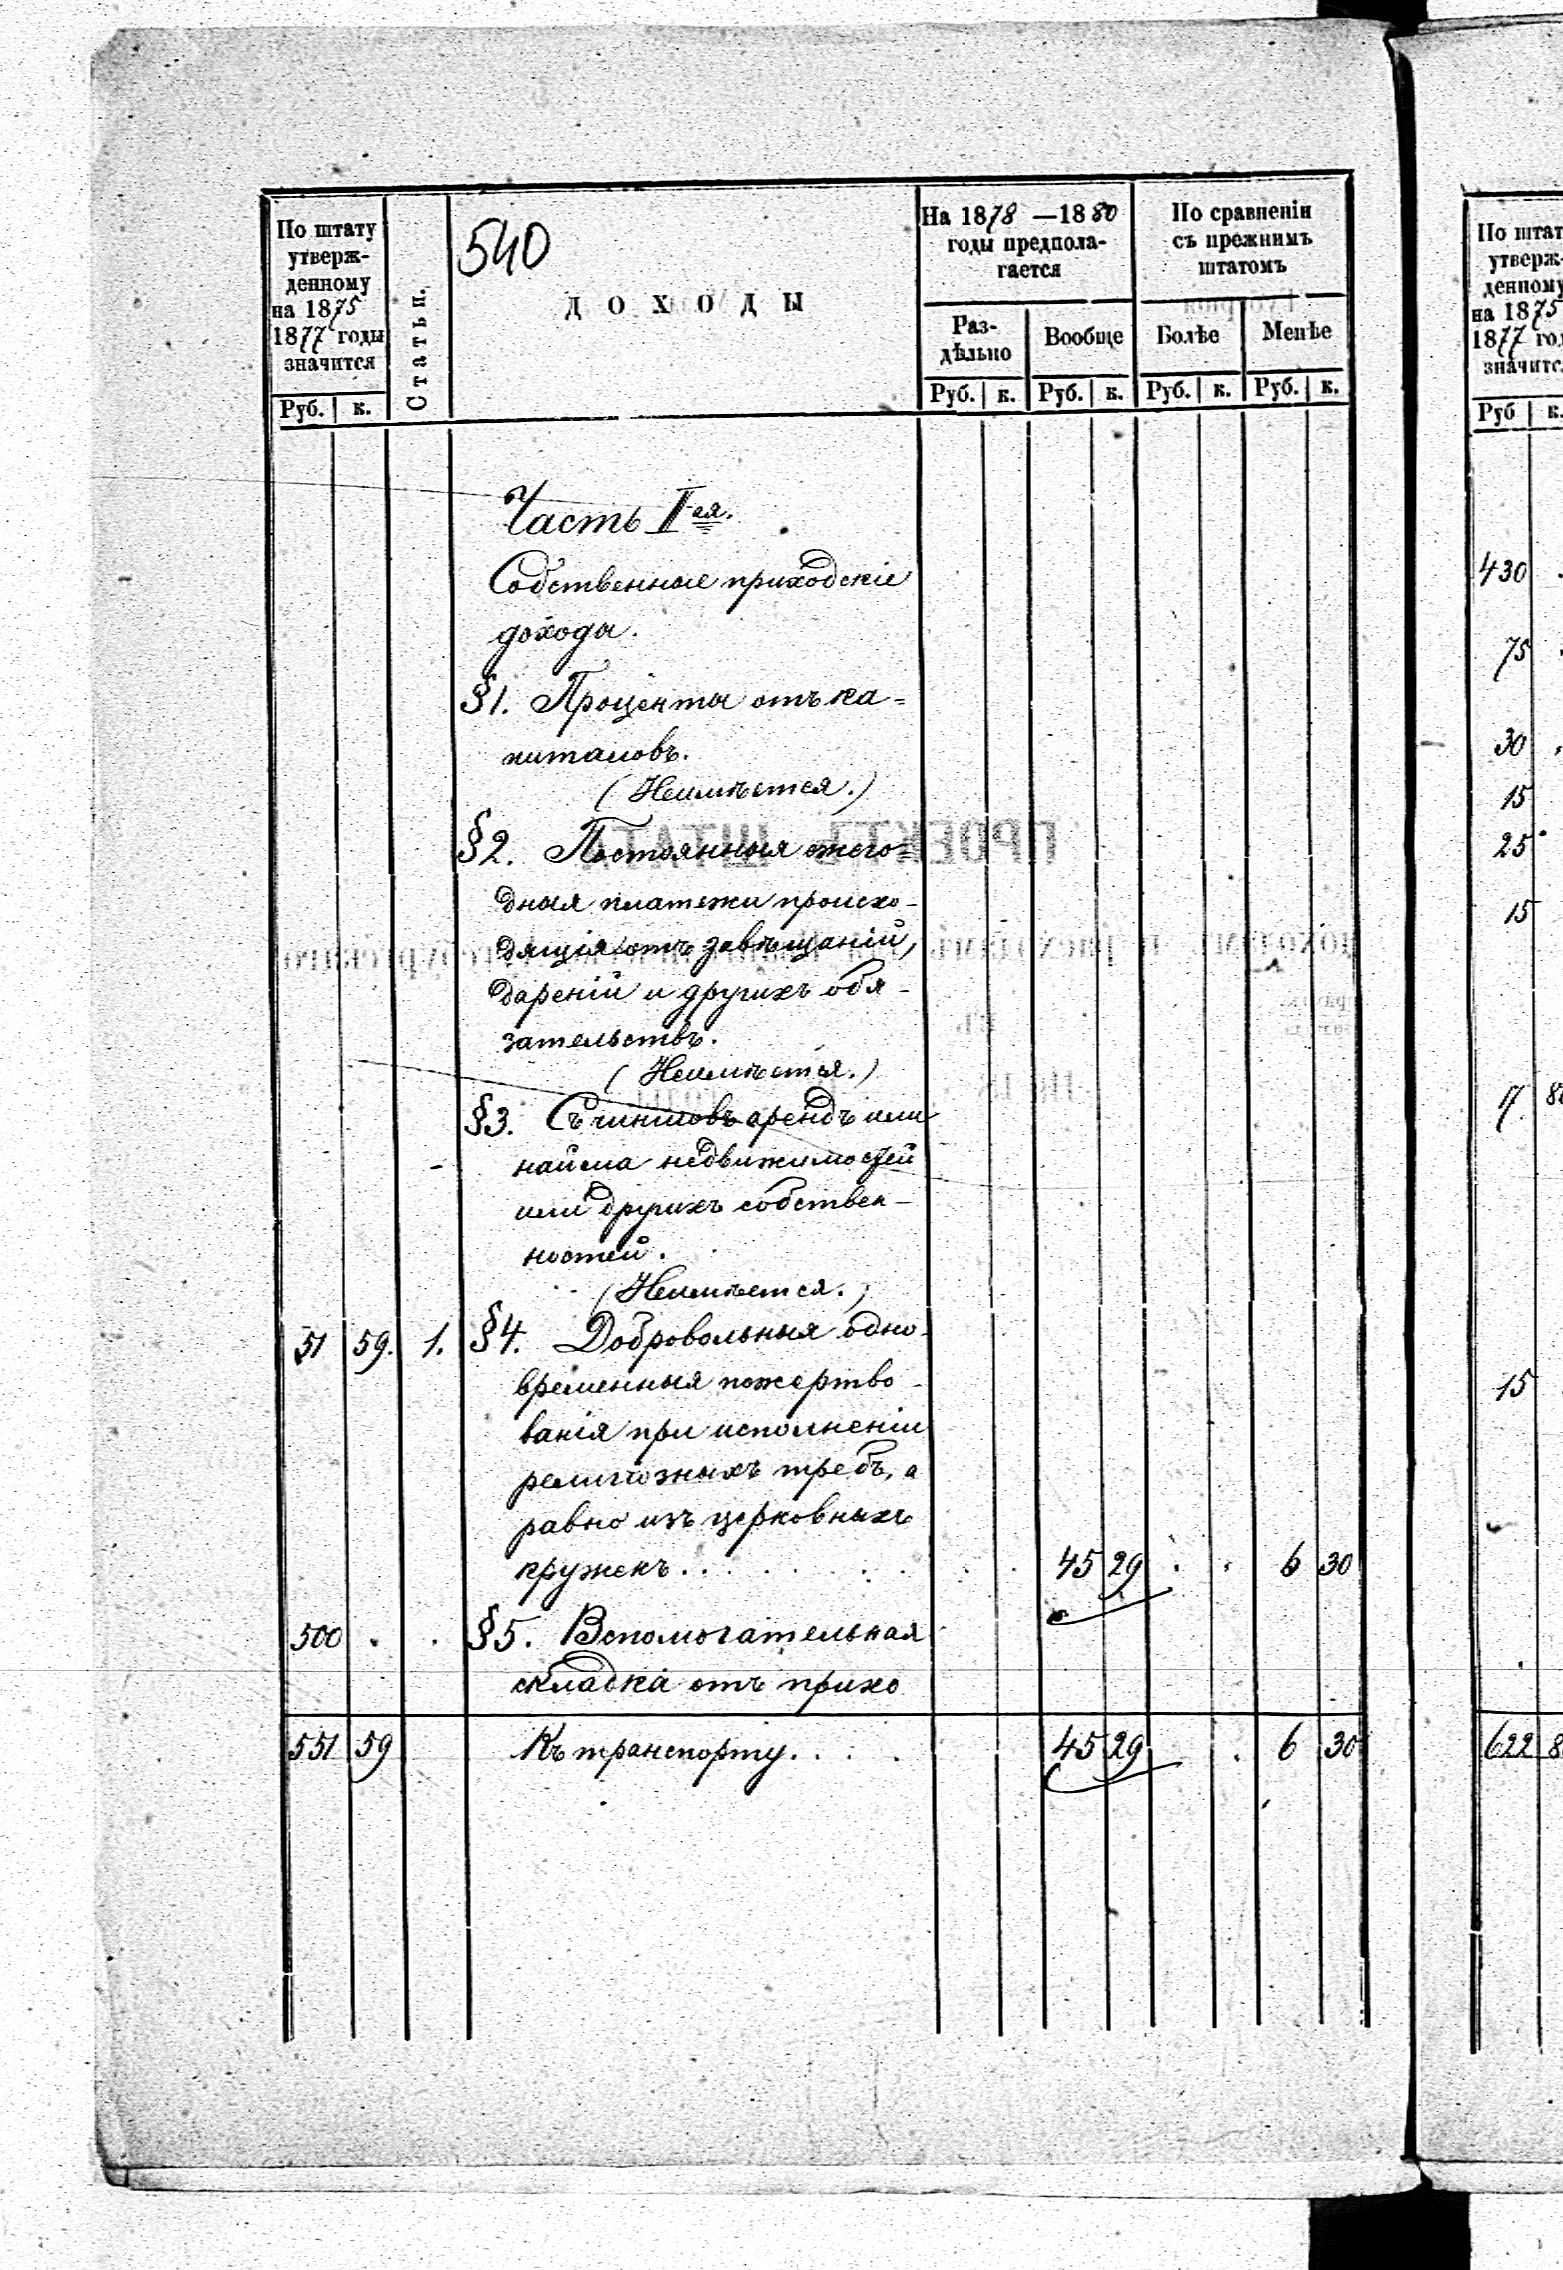 По штату
утверж-
денному
на 1875
1877 годы
значится
Руб. к.
Статьи.
540
ДОХОДЫ
На 1878 —1880
годы предпола-
гается
Раз-
дѣльно
Вообще
Руб. к. Руб. к.
По сравненіи
съ прежнимъ
штатомъ
Болѣе Менѣе
Руб. к. Руб. к.
Часть I-ая.
Собственные приходскіе
доходы.
§1. Проценты отъ ка=
питаловъ.
(Неимѣется.)
§2. Постоянныя ежего=
дныя платежи происхо-
дящія отъ завѣщаній,
дареній и другихъ обя-
зательствъ.
(Неимѣется.)
§3. Съ чиншовъ арендъ или
найма недвижимостей
или другихъ собствен-
ностей.
(Неимѣется.)
51 59. 1. §4. Добровольныя одно-
временныя пожертво-
ванія при исполненіи
религіозныхъ требъ, а
равно изъ церковныхъ
кружекъ. . . . . . . . 45 29 . . 6 30
500 . . §5. Вспомогательная
складка отъ прихо
551 59 Къ транспорту. . . . 45 29 . 6 30
По штат
утверж-
денному
на 1875
1877 год
значитс
Руб к.
430 .
75 .
30 .
15
25
15
7 8
15
622 8